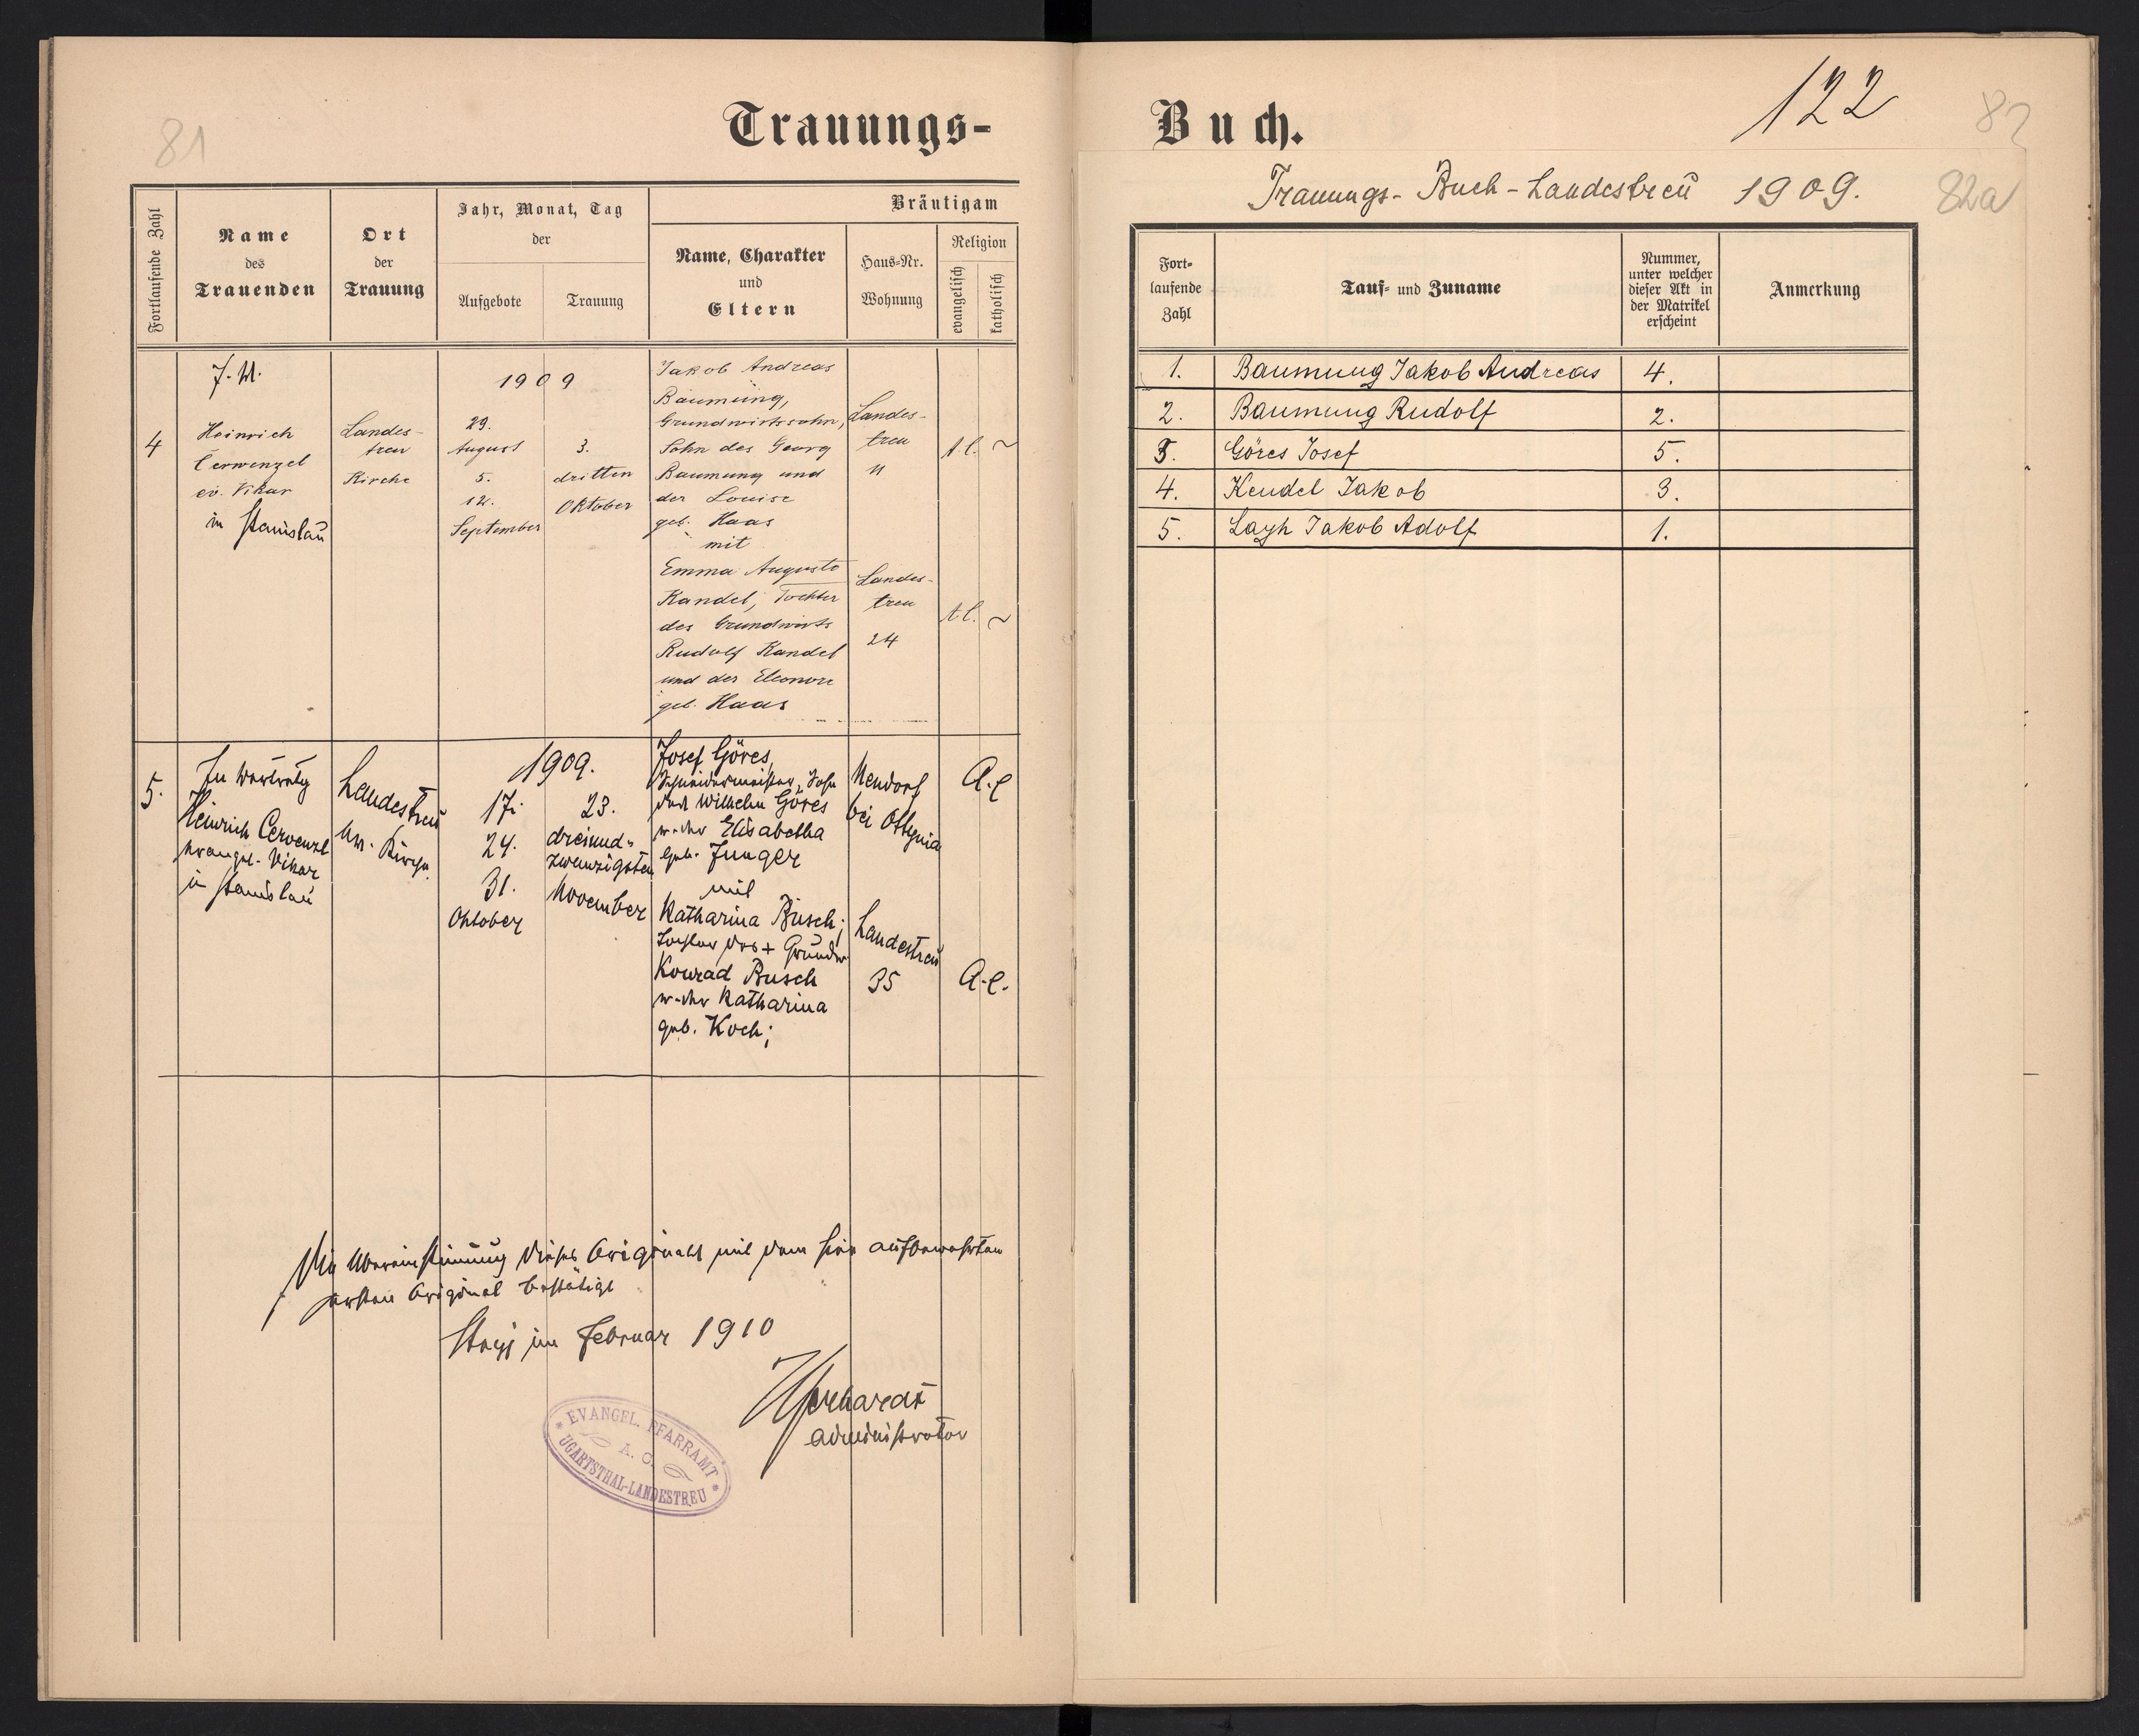 81
Trauungs-
Fortlaufende Zahl
Name
des
Trauenden
Ort
der
Trauung
Jahr, Monat, Tag
der
Aufgebote
Trauung
Bräutigam
Name, Charakter
und
Eltern
Haus-Nr.
Wohnung
Religion
evangelisch
katholisch
4
Heinrich
Cerwenzel
ev. Vikar
in Stanislau
Landes-
treu
Kirche
1909
29.
August
5.
12.
September
3.
dritten
Oktober
Jakob Andreas
Baumung,
Grundwirtssohn,
Sohn des Georg
Baumung und
der Louise
geb. Haas
mit
Emma Auguste
Kandel, Tochter
des Grundwirts
Rudolf Kandel
und der Eleonore
geb. Haas
Landes-
treu
11
Landes-
treu
24
5.
In Vertretg
Heinrich Cervenzl
evangel. Vikar
in Stanislau
Landestreu
ev. Kirche
1909.
17.
24.
31.
Oktober
23.
dreiund-
zwanzigsten
November
Josef Göres,
Schneidermeister, Sohn
des Wilhelm Göres
u. der Elisabetha
geb. Junger
mit
Katharina Busch;
Tochter des + Grundw
Konrad Busch
u. der Katharina
geb. Koch;
Neudorf
bei Ottynia
Landestreu
35
A.C
A.C.
Die Übereinstimmung dieses Originals mit dem hier aufbewahrten
ersten Original bestätigt
Stryj im Februar 1910
Administrator
* EVANGEL. PFARRAMT *
A. C.
UGARTSTHAL-LANDESTREU
Buch.
122
82
Trauungs-Buch-Landestreu 1909.
82a
Fort-
laufende
Zahl
Tauf- und Zuname
Nummer,
unter welcher
dieser Akt in
der Matrikel
erscheint
Anmerkung
1. Baumung Jakob Andreas 4.
2. Baumung Rudolf 2.
3. Göres Josef 5.
4. Kendel Jakob 3.
5. Layh Jakob Adolf 1.